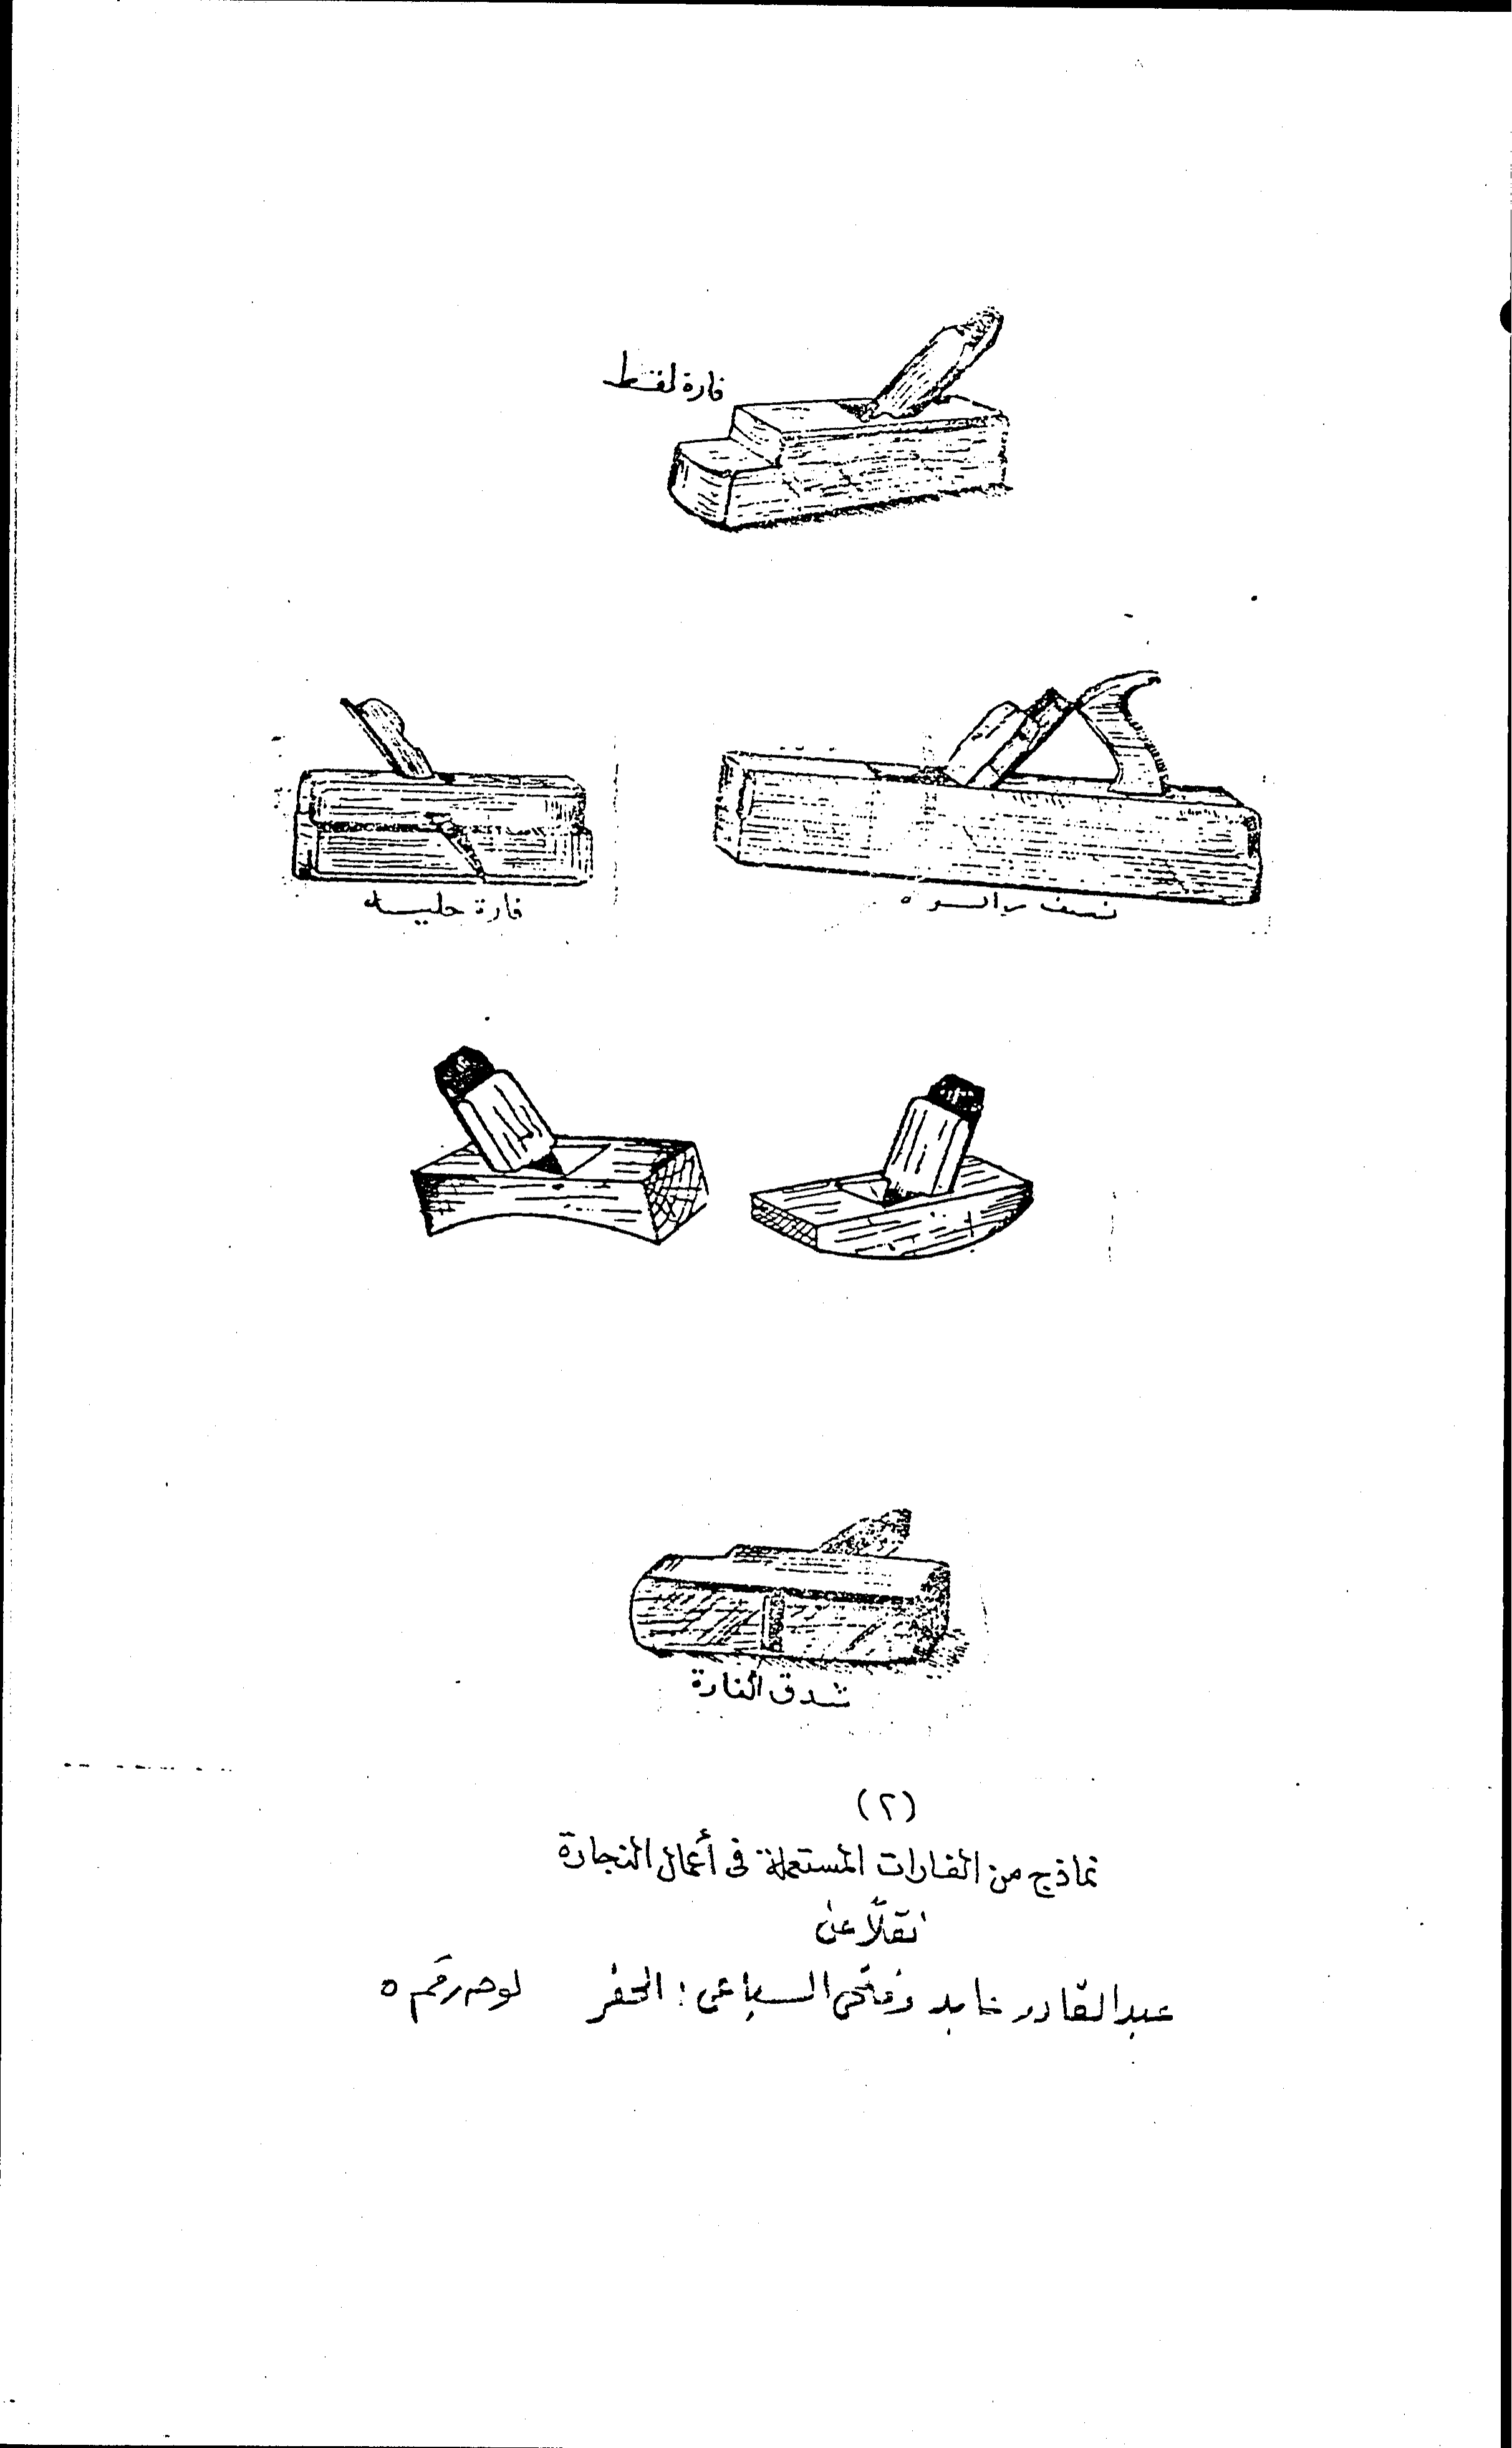 فارة لقط
نصف رابسوه
فارة حليه
شدق الفارة
(٢)
نماذج من الفارات المستعملة فى أعمال النجارة
نقلاً عن
عبد القادر عابد وفتحى السباعى : الحفر لوحه رقم ٥